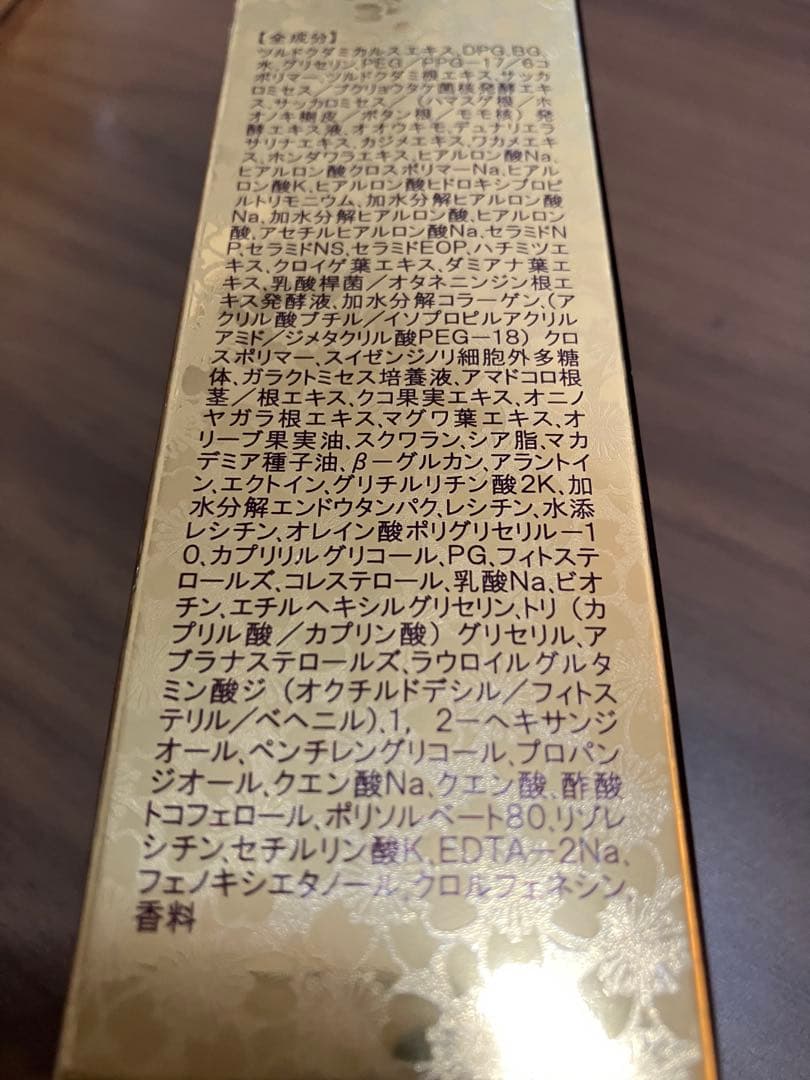 【全成分】
ツルドクダミカルスエキス、DPG、BG、
水、グリセリン、PEG／PPG－17／6コ
ポリマー、ツルドクダミ根エキス、サッカ
ロミセス／ブクリョウタケ菌核発酵エキ
ス、サッカロミセス／（ハマスゲ根／ホ
オノキ樹皮／ボタン根／モモ核）発
酵エキス液、オオウキモ、デュナリエラ
サリナエキス、カジメエキス、ワカメエキ
ス、ホンダワラエキス、ヒアルロン酸Na、
ヒアルロン酸クロスポリマーNa、ヒアル
ロン酸K、ヒアルロン酸ヒドロキシプロピ
ルトリモニウム、加水分解ヒアルロン酸
Na、加水分解ヒアルロン酸、ヒアルロン
酸、アセチルヒアルロン酸Na、セラミドN
P、セラミドNS、セラミドEOP、ハチミツエ
キス、クロイゲ葉エキス、ダミアナ葉エ
キス、乳酸桿菌／オタネニンジン根エ
キス発酵液、加水分解コラーゲン、（ア
クリル酸ブチル／イソプロピルアクリル
アミド／ジメタクリル酸PEG－18）クロ
スポリマー、スイゼンジノリ細胞外多糖
体、ガラクトミセス培養液、アマドコロ根
茎／根エキス、クコ果実エキス、オニノ
ヤガラ根エキス、マグワ葉エキス、オ
リーブ果実油、スクワラン、シア脂、マカ
デミア種子油、β－グルカン、アラントイ
ン、エクトイン、グリチルリチン酸2K、加
水分解エンドウタンパク、レシチン、水添
レシチン、オレイン酸ポリグリセリル－1
0、カプリリルグリコール、PG、フィトステ
ロールズ、コレステロール、乳酸Na、ビオ
チン、エチルヘキシルグリセリン、トリ（カ
プリル酸／カプリン酸）グリセリル、ア
ブラナステロールズ、ラウロイルグルタ
ミン酸ジ（オクチルドデシル／フィトス
テリル／ベヘニル）、1，2－ヘキサンジ
オール、ペンチレングリコール、プロパン
ジオール、クエン酸Na、クエン酸、酢酸
トコフェロール、ポリソルベート80、リゾレ
シチン、セチルリン酸K、EDTA－2Na、
フェノキシエタノール、クロルフェネシン、
香料